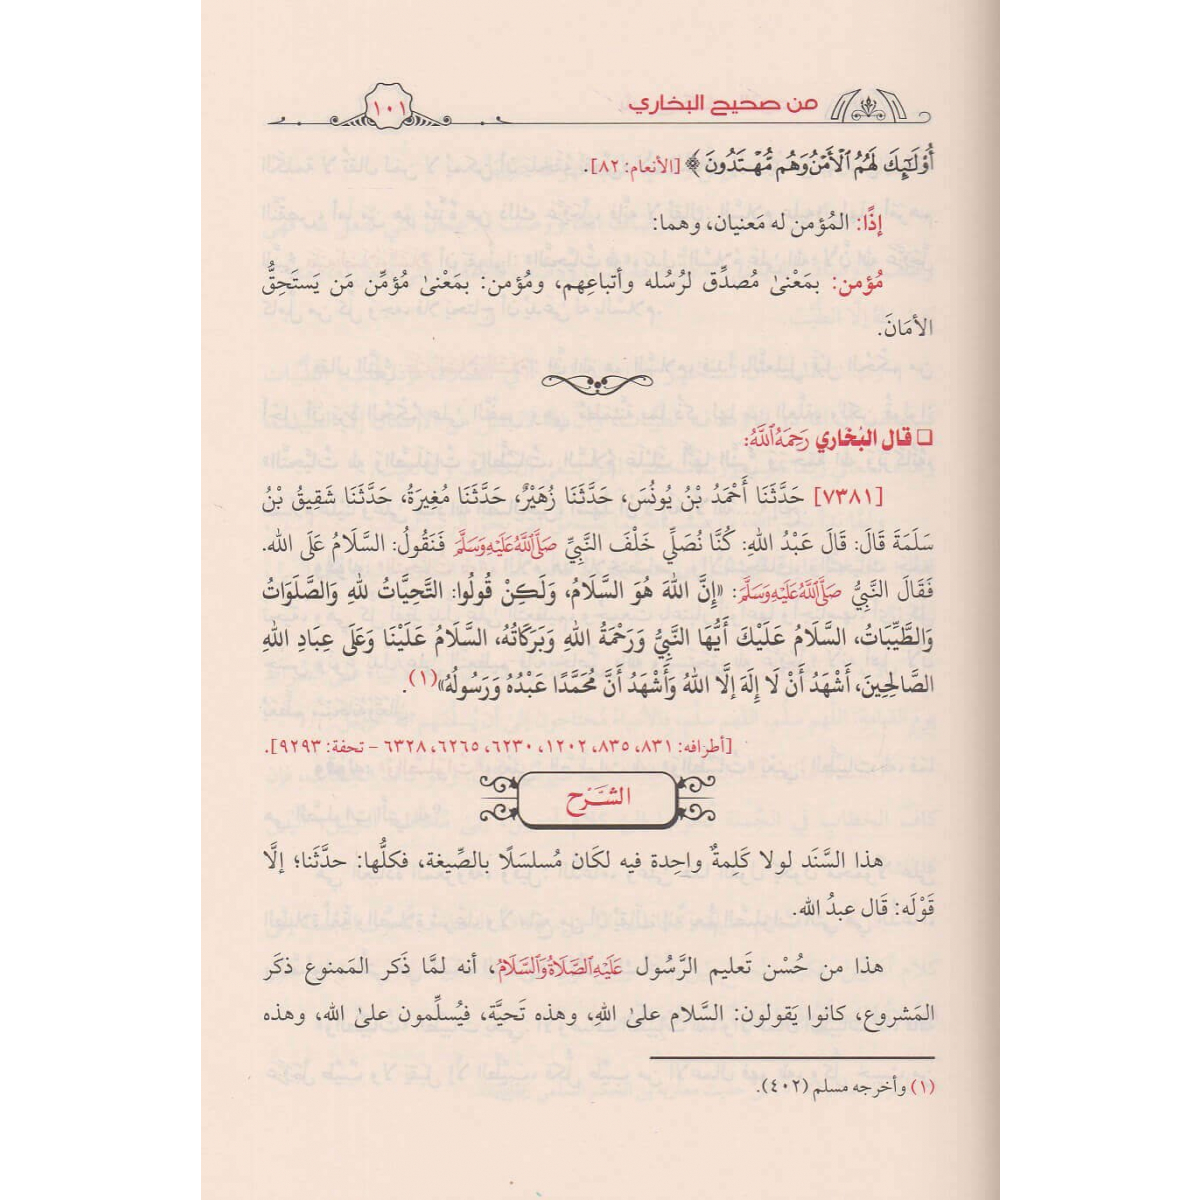 من صحيح البخاري
١٠١
أُوْلَٰٓئِكَ لَهُمُ ٱلۡأَمۡنُ وَهُم مُّهۡتَدُونَ ﴾ [الأنعام: ٨٢].
إذًا: المُؤمن له مَعنيان، وهما:
مُؤمن: بمَعْنىٰ مُصدِّق لرُسُله وأتباعِهم، ومُؤمن: بمَعْنىٰ مُؤمِّن مَن يَستَحِقُّ
الأمَانَ.
❑ قال البُخَاري رَحِمَهُ ٱللَّهُ:
[٧٣٨١] حَدَّثَنَا أَحْمَدُ بْنُ يُونُسَ، حَدَّثَنَا زُهَيْرٌ، حَدَّثَنَا مُغِيرَةُ، حَدَّثَنَا شَقِيقُ بْنُ
سَلَمَةَ قَالَ: قَالَ عَبْدُ اللهِ: كُنَّا نُصَلِّي خَلْفَ النَّبِيِّ صَلَّى ٱللَّهُ عَلَيْهِ وَسَلَّمَ فَنَقُولُ: السَّلَامُ عَلَى الله.
فَقَالَ النَّبِيُّ صَلَّى ٱللَّهُ عَلَيْهِ وَسَلَّمَ: «إِنَّ اللهَ هُوَ السَّلَامُ، وَلَكِنْ قُولُوا: التَّحِيَّاتُ للهِ وَالصَّلَوَاتُ
وَالطَّيِّبَاتُ، السَّلَامُ عَلَيْكَ أَيُّهَا النَّبِيُّ وَرَحْمَةُ اللهِ وَبَرَكَاتُهُ، السَّلَامُ عَلَيْنَا وَعَلَى عِبَادِ اللهِ
الصَّالِحِينَ، أَشْهَدُ أَنْ لَا إِلَهَ إلَّا اللهُ وَأَشْهَدُ أَنَّ مُحَمَّدًا عَبْدُهُ وَرَسُولُهُ»(١).
[أطرافه: ٨٣١، ٨٣٥، ١٢٠٢، ٦٢٣٠، ٦٢٦٥، ٦٣٢٨ – تحفة: ٩٢٩٣].
الشَّرْح
هذا السَّنَد لولا كَلمةٌ واحِدة فيه لكَان مُسلسَلًا بالصِّيغة، فكلُّها: حدَّثَنا؛ إلَّا
قَوْلَه: قَال عبدُ الله.
هذا من حُسْن تَعليم الرَّسُول عَلَيْهِ ٱلصَّلَاةُ وَٱلسَّلَامُ، أنه لمَّا ذَكر المَمنوع ذكَر
المَشروع، كانوا يَقولون: السَّلام علىٰ اللهِ، وهذه تَحيَّة، فيُسلِّمون علىٰ الله، وهذه
(١) وأخرجه مسلم (٤٠٢).